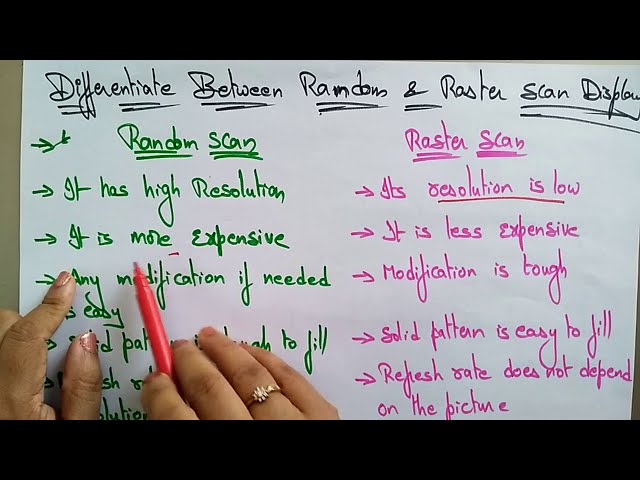 Differentiate Between Ramdom & Raster Scan Display
Random Scan
→ It has high Resolution
→ It is more Expensive
→ Any modification if needed
is easy
→ Solid to fill
Raster Scan
→ Its resolution is low
→ It is less Expensive
→ Modification is tough
→ Solid pattern is easy to fill
→ Refresh rate does not depend
on the picture